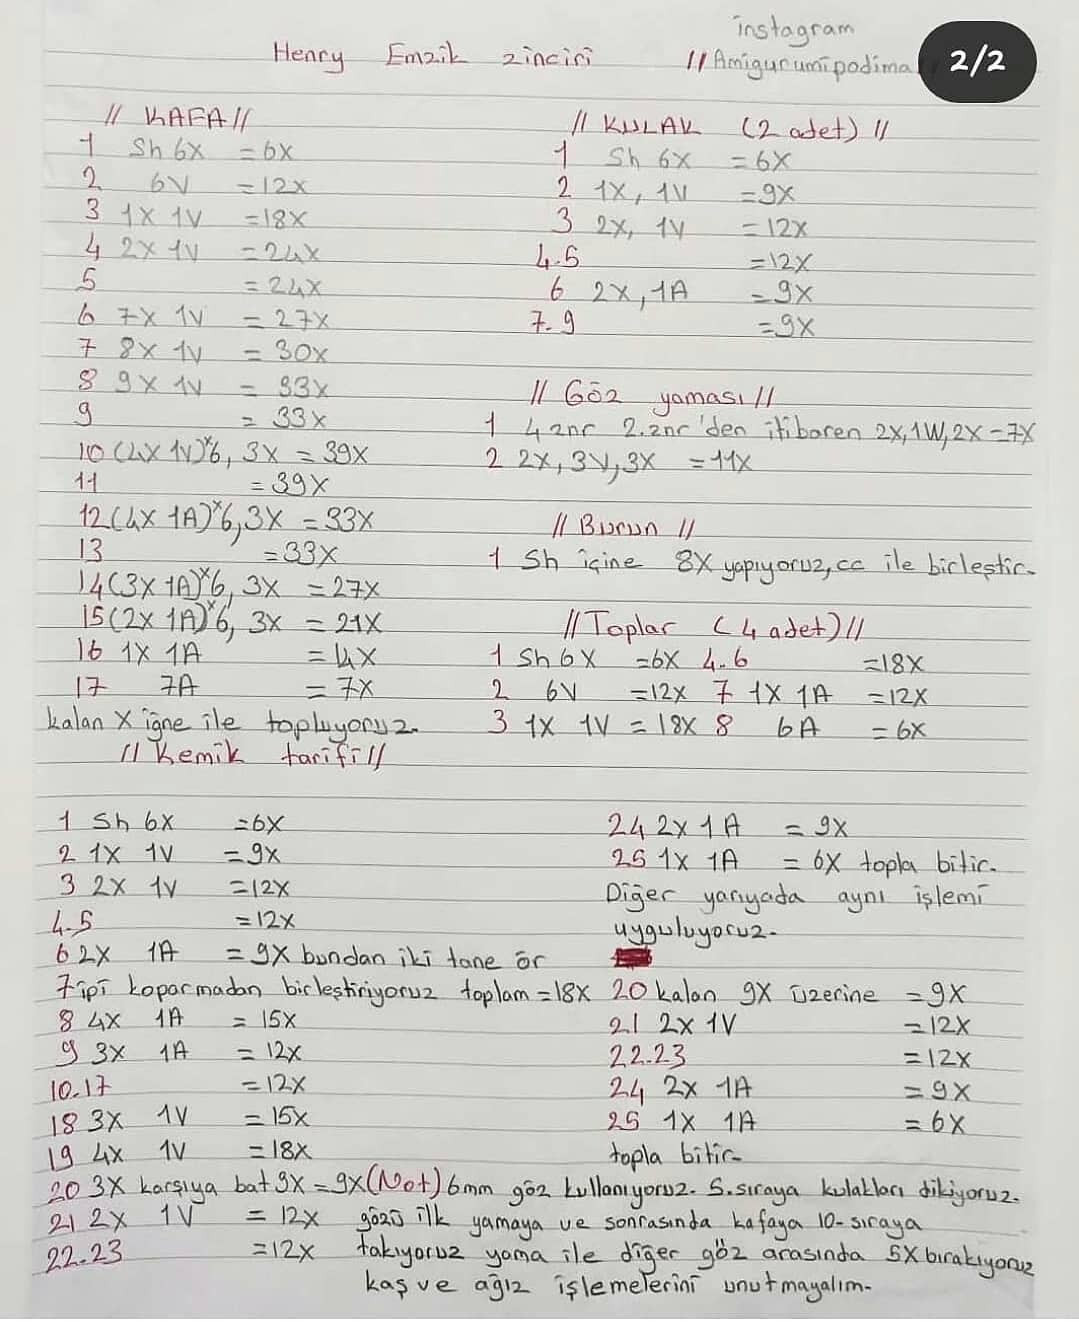 instagram
Henry Emzik zinciri
//Amigurumipodima
2/2
// KAFA //
1 Sh 6X = 6X
2 6V = 12X
3 1X 1V = 18X
4 2X 1V = 24X
5 = 24X
6 7X 1V = 27X
7 8X 1V = 30X
8 9X 1V = 33X
9 = 33X
10 (4X 1V)*6, 3X = 39X
11 = 39X
12 (4X 1A)*6, 3X = 33X
13 = 33X
14 (3X 1A)*6, 3X = 27X
15 (2X 1A)*6, 3X = 21X
16 1X 1A = 14X
17 7A = 7X
kalan X iğne ile topluyoruz.
// KULAK (2 adet) //
1 Sh 6X = 6X
2 1X, 1V = 9X
3 2X, 1V = 12X
4-5 = 12X
6 2X, 1A = 9X
7-9 = 9X
// Göz yaması //
1 4 znc 2.znc'den itibaren 2X, 1W, 2X = 7X
2 2X, 3V, 3X = 11X
// Burun //
1 Sh içine 8X yapıyoruz, cc ile birleştir.
// Toplar (4 adet) //
1 Sh 6X = 6X 4-6 = 18X
2 6V = 12X 7 1X 1A = 12X
3 1X 1V = 18X 8 6A = 6X
// Kemik tarifi //
1 Sh 6X = 6X
2 1X 1V = 9X
3 2X 1V = 12X
4-5 = 12X
6 2X 1A = 9X bundan iki tane ör
7 ipi koparmadan birleştiriyoruz toplam = 18X
8 4X 1A = 15X
9 3X 1A = 12X
10-17 = 12X
18 3X 1V = 15X
19 4X 1V = 18X
20 3X karşıya bat 9X = 9X
21 2X 1V = 12X
22-23 = 12X
24 2X 1A = 9X
25 1X 1A = 6X topla bitir.
Diğer yarıyada aynı işlemi
uyguluyoruz.
20 kalan 9X üzerine = 9X
21 2X 1V = 12X
22-23 = 12X
24 2X 1A = 9X
25 1X 1A = 6X
topla bitir.
(Not) 6mm göz kullanıyoruz. 5.sıraya kulakları dikiyoruz.
gözü ilk yamaya ve sonrasında kafaya 10.sıraya
takıyoruz yama ile diğer göz arasında 5X bırakıyoruz
kaş ve ağız işlemelerini unutmayalım.